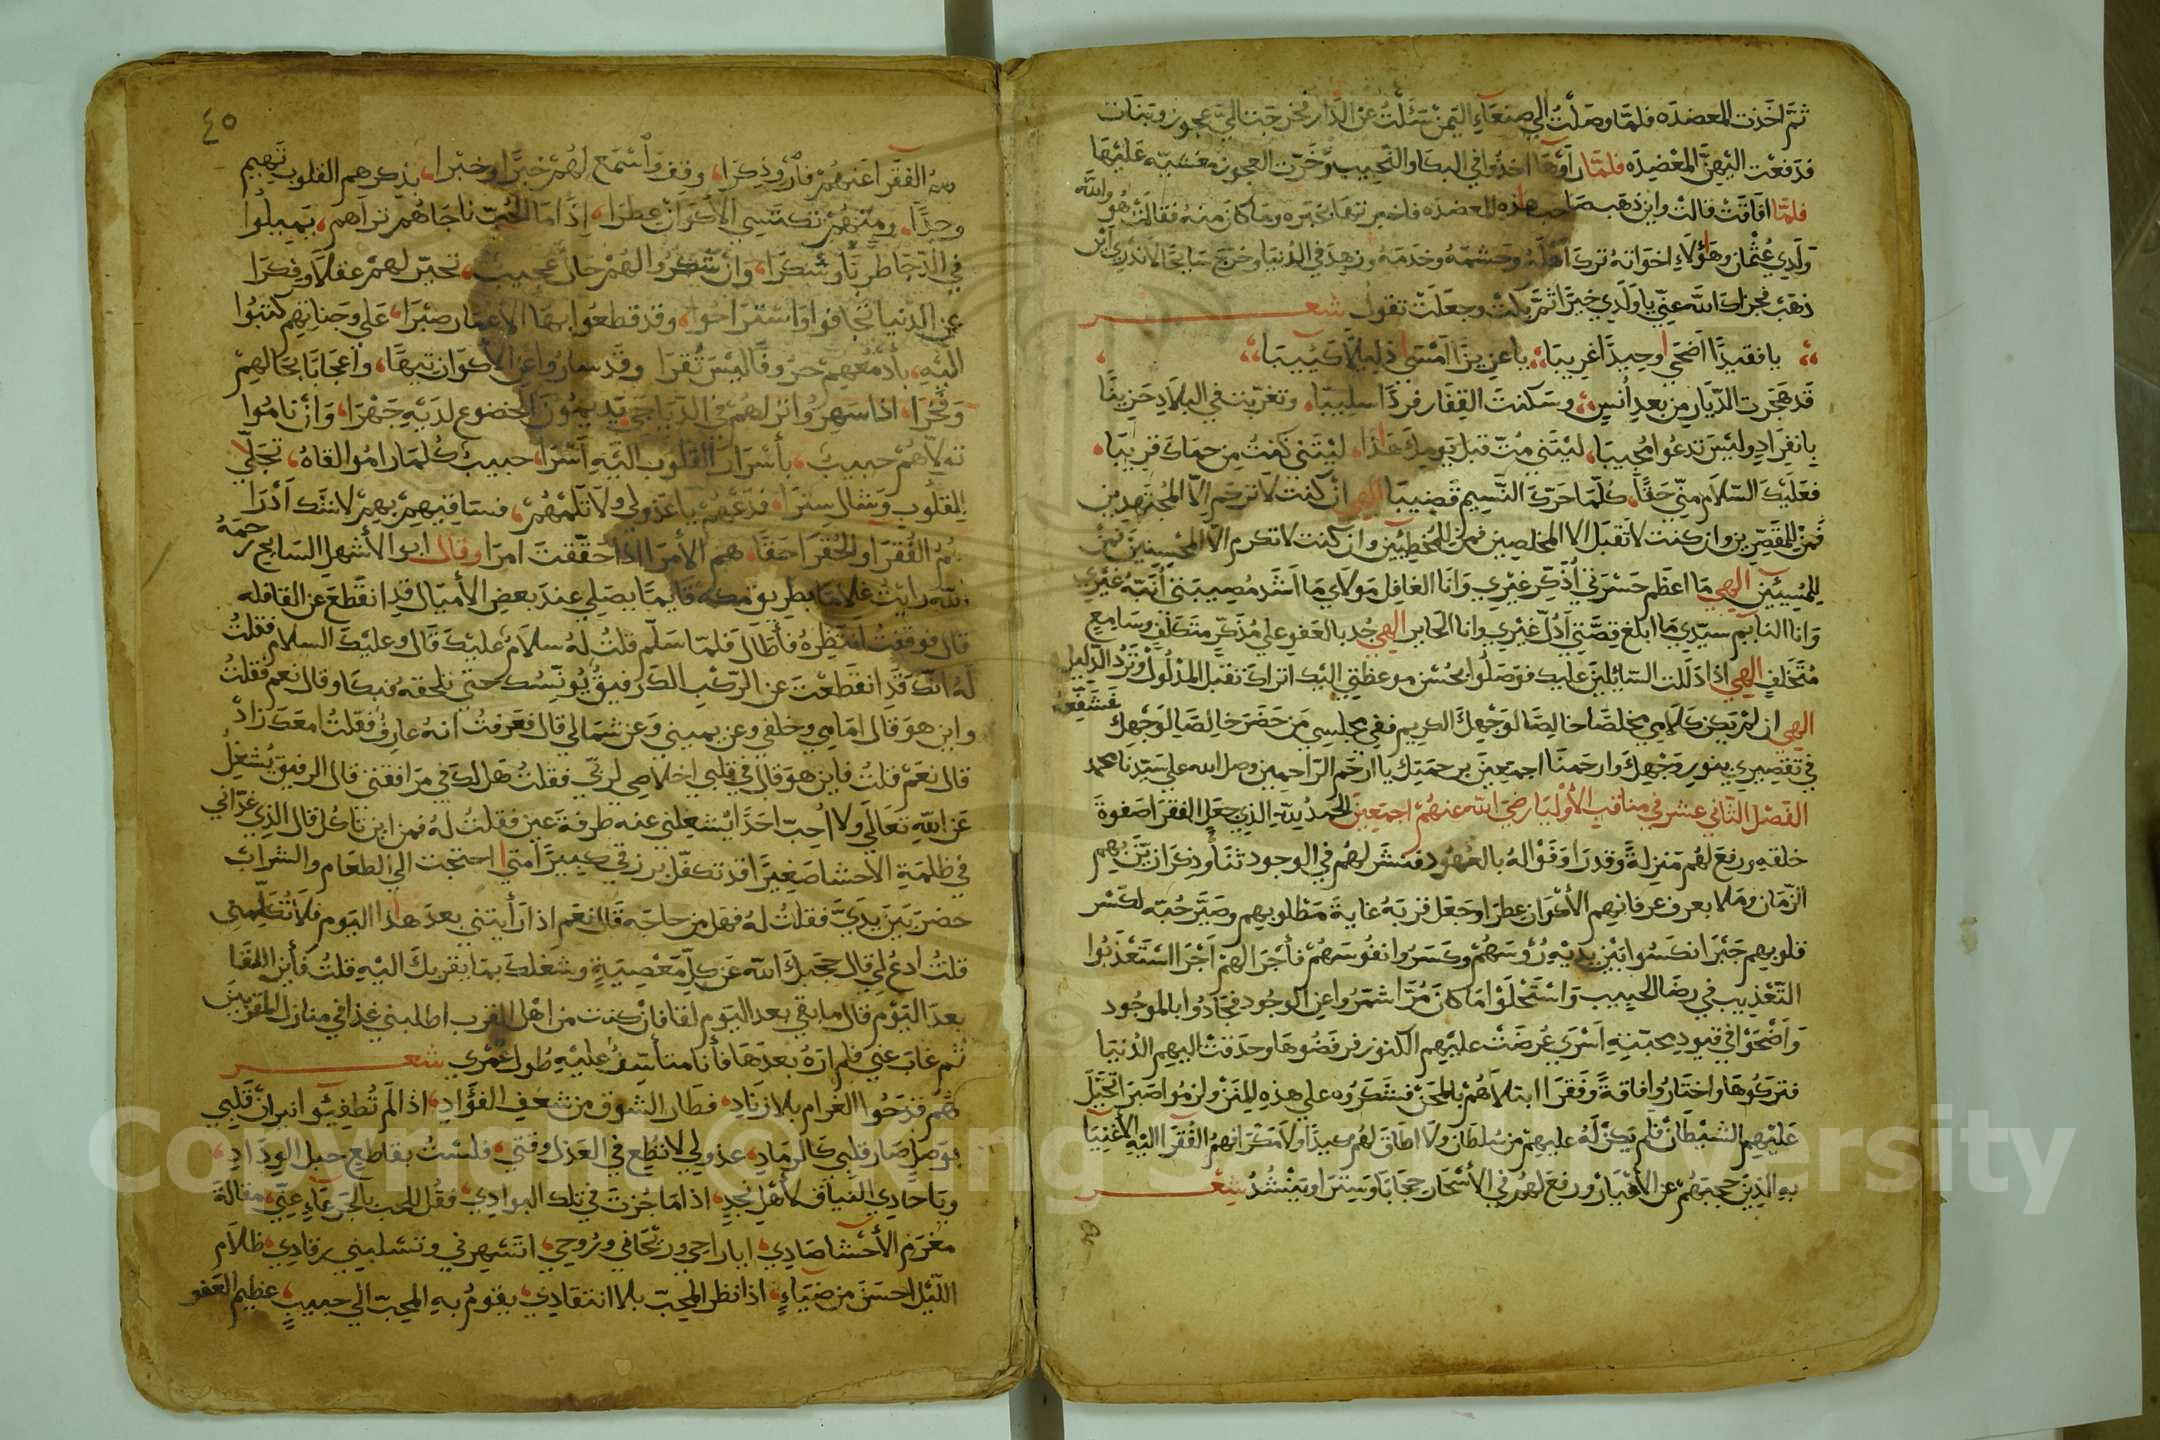 ثم اخذت المعضده فلما وصلت الي صنعاء اليمن سئلت عن الدار فخرجت الي عجوز وبنات
فدفعت اليهن المعضده فلما راوها اخذوا في البكا والنحيب وخرت العجوز مغشيه عليها
فلما افاقت قالت واين ذهب صاحب هذه المعضده فاخبرتها بخبره وما كان منه فقالت هو والله
ولدي عثمان وهؤلاء اخواته ترك اهله وحشمه وخدمه وزهد في الدنيا وخرج سايحا لا ندري اين
ذهب فجزاك الله عني يا ولدي خيرا ثم بكت وجعلت تقول شعر
يا فقيدا اضحى وحيدا غريبا، يا عزيزا امسي ذليلا كئيبا،
قد هجرت الديار من بعد أنس، وسكنت القفار فردا سليبا، وتغربت في البلاد حزينا
بانفراد وليس تدعوا مجيبا، ليتني مت قبل يومك هذا، ليتني كنت من حماك قريبا،
فعليك السلام مني حقا، كلما حرك النسيم قضيبا الهي ان كنت لا ترحم الا المجتهدين
فمن للمقصرين وان كنت لا تقبل الا المخلصين فمن للمخطئين وان كنت لا تكرم الا المحسنين فمن
للمسيئين الهي ما اعظم حسرتي أذكر غيري وانا الغافل مولاي ما اشد مصيبتي أنبه غيري
وانا النايم سيدي ما ابلغ قصتي أدل غيري وانا الحاير الهي جد بالعفو علي مذكر متكلف وسامع
متخلف الهي اذا دللت السائلين عليك فوصلوا بحسن موعظتي اليك اتراك تقبل المدلول وترد الدليل
الهي ان لم يكن كلامي مخلصا خالصا لوجهك الكريم ففي مجلسي من حضر خالصا لوجهك فشفعه
في تقصيري بنور وجهك وارحمنا اجمعين برحمتك يا ارحم الراحمين وصل الله علي سيدنا محمد
الفصل الثاني عشر في مناقب الأوليا رضي الله عنهم اجمعين الحمد لله الذي جعل الفقرا صفوة
خلقه ورفع لهم منزلة وقدرا وفوا له بالعهود فنشر لهم في الوجود ثنأ وذكرا زين بهم
الزمان وملا بعرف عرفانهم الأكوان عطرا وجعل قربه غاية مطلوبهم وصير حبه لكسر
قلوبهم جبرا نكسوا بين يديه رؤسهم وكسروا نفوسهم فأجرا لهم اجرا استعذبوا
التعذيب في رضا الحبيب واستحلوا ما كان مرا شمروا عن الوجود فجادوا بالموجود
واضحوا في قيود محبته اسري عرضت عليهم الكنوز فرفضوها وحدقت اليهم الدنيا
فتركوها واختاروا فاقة وفقرا ابتلاهم بالمحن فشكروه علي هذه المنن ولزموا صبرا تحيل
عليهم الشيطان فلم يكن له عليهم من سلطان ولا اطاق لهم كيدا ولا مكرا فهم الفقرا اليه الأغنيا
به الذين حجبهم عن الأغيار ورفع لهم في الأسحار حجابا وسترا وينشد شعر
٤٥
الفقرا عنهم فأرو ذكرا، وقف واسمع لهم خبرا وخبرا، بذكرهم القلوب تهيم
وجدا، ومنهم تكتسي الأكوان عطرا، إذا ما الحب ناجاهم تراهم، يميلوا
في الدجا طربا وشكرا، وان شكروا لهم حال عجيب، تحير لهم عقلا وفكرا
عن الدنيا تجافوا واستراحوا، وقد قطعوا بها الأعمار صبرا، على وجناتهم كتبوا
اليه، بأدمعهم حروفا ليس تقرا وقد ساروا عن الأكوان تيها، واعجابا بحالهم
وفخرا، اذا سهروا تراهم في الدياجي، يديمون الخضوع لديه جهرا، وان ناموا
تولاهم حبيب، بأسرار القلوب اليه اسرا، حبيب كلما راموا لقاه، تجلي
للقلوب وشال سترا، فدعهم يا عذولي ولا تلمهم، فساقيهم بهم لا شك أدرا
هم الفقرا والحقرا حقا، هم الأمرا اذا حققت امرا وقال ابو الأشهل السايح رحمه
الله رايت غلاما بطريق مكه قايما يصلي عند بعض الأميال قد انقطع عن القافله
قال فوقفت انتظره فأطال فلما سلم قلت له سلام عليك قال وعليك السلام فقلت
له انك قد انقطعت عن الركب الك رفيق يونسك حتي تلحقه فبكا وقال نعم فقلت
واين هو قال امامي وخلفي وعن يميني وعن شمالي قال فعرفت انه عارف فقلت امعك زاد
قال نعم قلت فاين هو قال في قلبي اخلاصي لربي فقلت هل لك في مرافقتي قال الرفيق يشغل
عن الله تعالي ولا احب احدا يشغلني عنه طرفة عين فقلت له فمن اين تاكل قال الذي غذاني
في ظلمة الأحشا صغيرا قد تكفل برزقي كبيرا متي احتجت الي الطعام والشراب
حضر بين يدي فقلت له فهل من حاجه قال نعم اذا رأيتني بعد هذا اليوم فلا تكلمني
قلت ادع لي قال حجبك الله عن كل معصية وشغلك بما يقربك اليه قلت فأين اللقا
بعد اليوم قال ما بقي بعد اليوم لقا فان كنت من اهل القرب اطلبني غذا في منازل المقربين
ثم غاب عني فلم اره بعدها فأنا متأسف عليه طول عمري شعر
هم قدحوا الغرام بلا زناد، فطار الشوق من شغف الفؤاد، اذا لم تطفيئوا نيران قلبي
بوصل صار قلبي كالرماد، عذولي لا تطع في العذل وقتي، فلست بقاطع حبل الوداد،
ويا حادي النياق لأهل نجد، اذا ما جزت في تلك البوادي، فقل للحب بالجرعاء عني، مقالة
مغرم الأحشا صادي، ايا راحي وريحاني وروحي، اتسهرني وتسليني رقادي، ظلام
الليل احسن من ضياء، اذا نظر المحب بلا انتقادي، يقوم به المحب الي حبيب، عظيم العفو